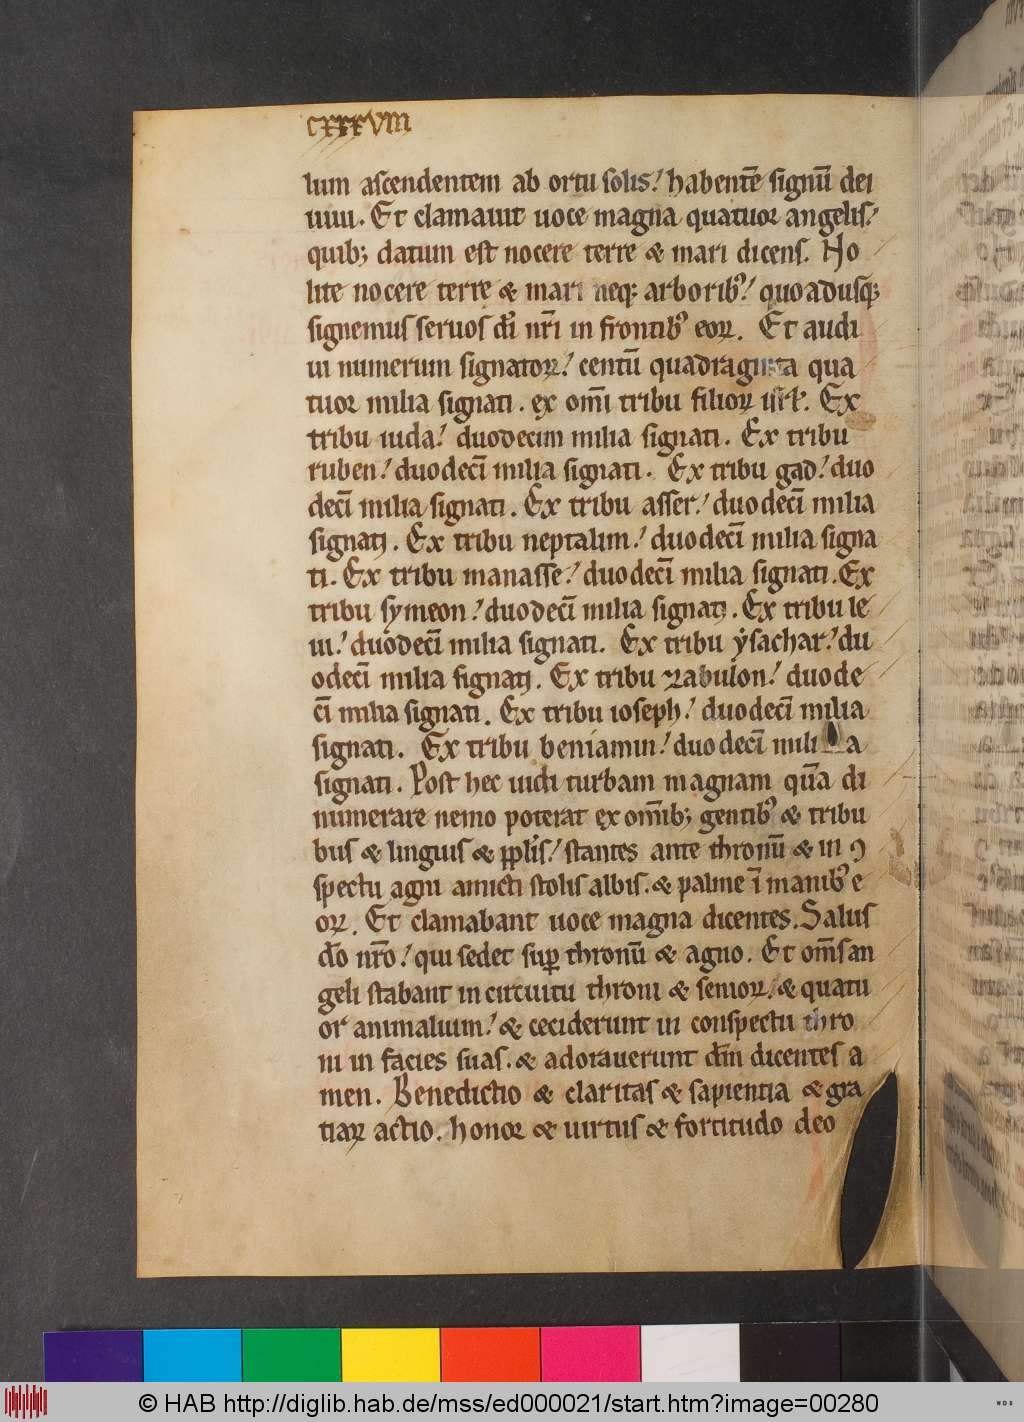 cxxxviii
lum ascendentem ab ortu solis. habentē signū dei
uiui. Et clamauit uoce magna quatuor angelis.
quib; datum est nocere terre & mari dicens. No
lite nocere terre & mari neq; arborib᷒. quoadusq;
signemus seruos dı̄ nr̄i in frontib᷒ eoꝝ. Et audi
ui numerum signatoꝝ. centū quadraginta qua
tuor milia signati. ex om̄i tribu filioꝝ isrl̄. Ex
tribu iuda. duodecim milia signati. Ex tribu
ruben. duodecī milia signati. Ex tribu gad. duo
decī milia signati. Ex tribu asser. duodecī milia
signati. Ex tribu neptalim. duodecī milia signa
ti. Ex tribu manasse. duodecī milia signati. Ex
tribu symeon. duodecī milia signati. Ex tribu le
ui. duodecī milia signati. Ex tribu ẏsachar. du
odecī milia signati. Ex tribu zabulon. duode
cī milia signati. Ex tribu ioseph. duodecī milia
signati. Ex tribu beniamin. duodecī mili a
signati. Post hec uidi turbam magnam quā di
numerare nemo poterat ex om̄ib; gentib᷒ & tribu
bus & linguis & pplı̄s. stantes ante thronū & in ꝯ
spectu agni amicti stolis albis. & palme ī manib᷒ e
oꝝ. Et clamabant uoce magna dicentes. Salus
dō nr̄o. qui sedet suꝑ thronū & agno. Et om̄s an
geli stabant in circuitu throni & senioꝝ. & quatu
or animalium. & ceciderunt in conspectu thro
ni in facies suas. & adorauerunt dm̄ dicentes a
men. Benedictio & claritas & sapientia & gra
tiaꝝ actio. honor & uirtus & fortitudo deo
© HAB http://diglib.hab.de/mss/ed000021/start.htm?image=00280